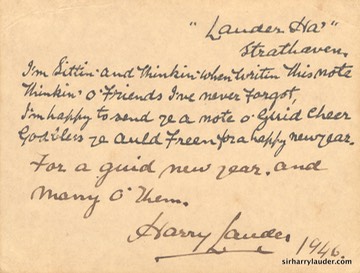 "Lauder Ha'"
Strathaven.
I'm Sittin' and Thinkin' when writin this note
Thinkin' o' Friends I've never Forgot,
I'm happy to send ye a note o' Guid Cheer
God bless ye auld Freen for a happy new year.
For a guid new year. and
many o' them.
Harry Lauder 1946.
sirharrylauder.com